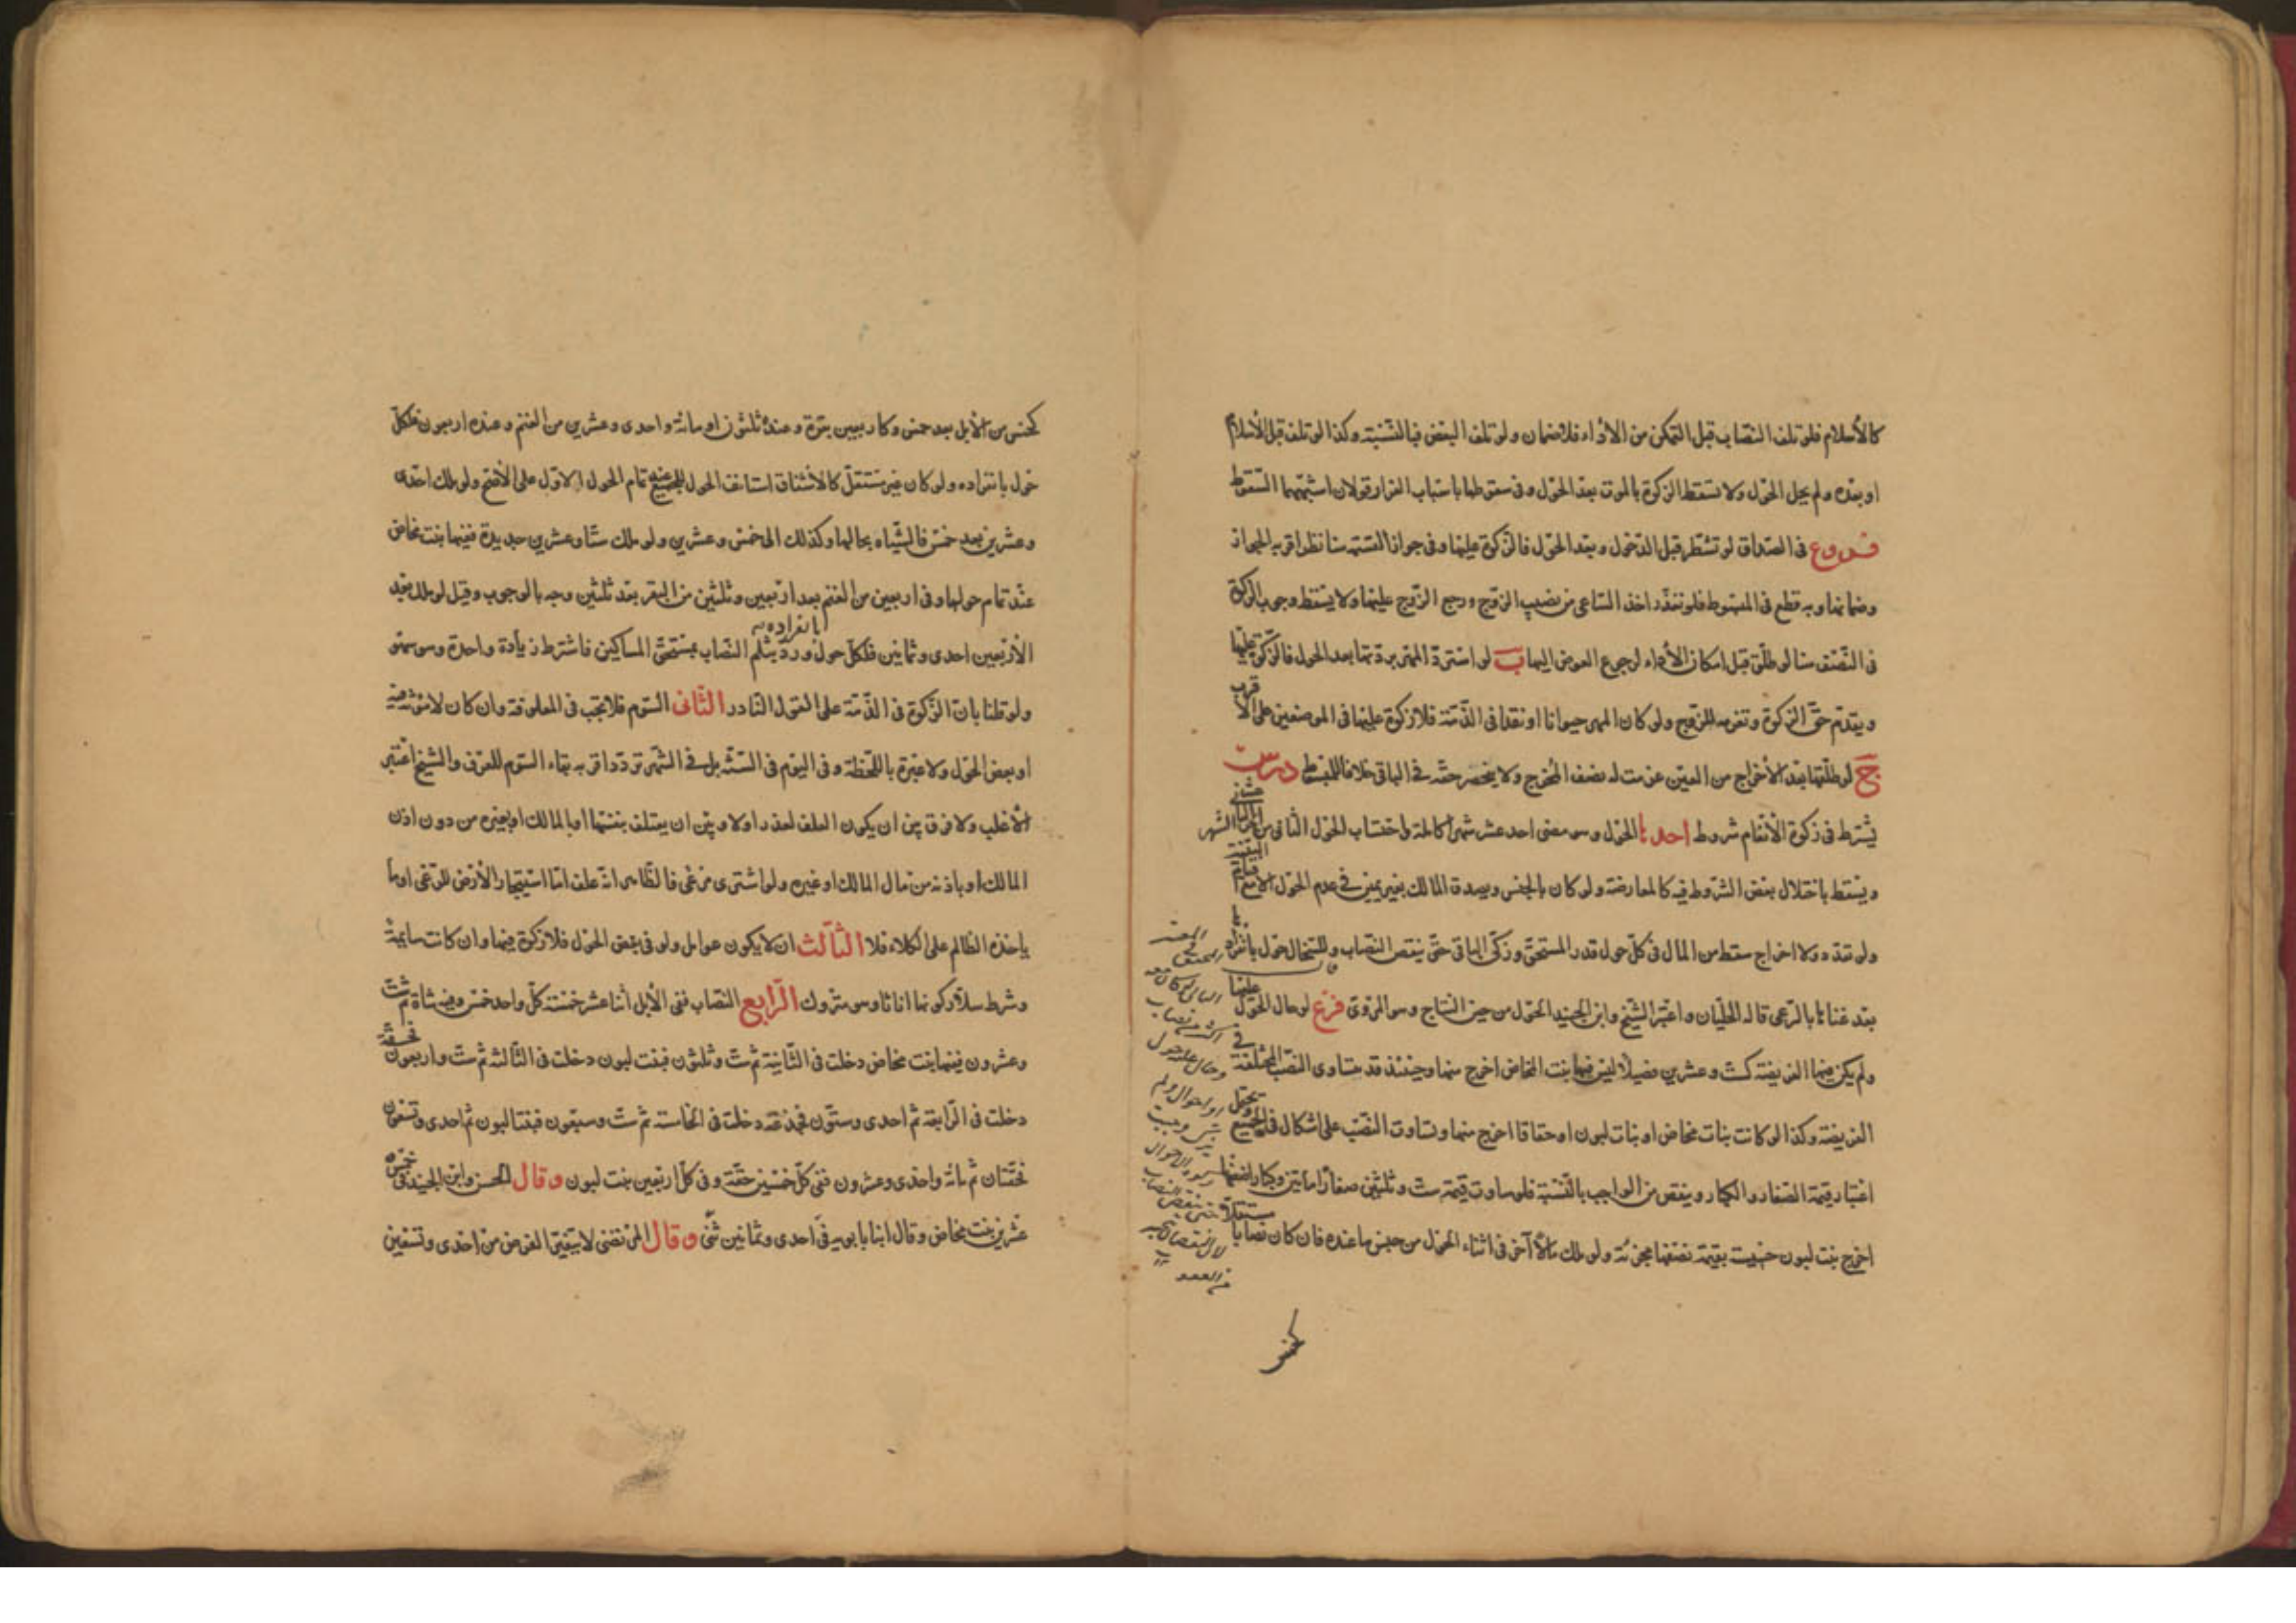 كالأسلام فلو تلف النصاب قبل التمكن من الاداء فلا ضمان ولو تلف البعض فبالنسبة وكذا لو تلف قبل الأسلام
او بعده ولم يحل الحول ولا تسقط الزكوة بالموت بعد الحول وفي سقوطها باسباب الفرار قولان اشبههما السقوط
فروع في الصداق لو تشطر قبل الدخول وبعد الحول فالزكوة عليها وفي جواز القسمة هنا نظر اقربه الجواز
وضمانها وبه قطع في المبسوط فلو تعذر اخذ الساعي من نصيب الزوج ورجع الزوج عليها ولا يسقط وجوب الزكوة
في النصف هنا لو طلق قبل امكان الأداء لرجوع العوض اليها ب لو استرد المهر بردتها بعد الحول فالزكوة عليها
ويقدم حق الزكوة وتغرمه للزوج ولو كان المهر حيوانا او نقدا في الذمة فلا زكوة عليها في الموضعين على الأقرب
ج لو طلقها بعد الأخراج من العين غرمت له نصف المخرج ولا ينحصر حقه في الباقي خلافا للمبسوط درس
يشترط في زكوة الأنعام شروط احدها الحول وهو مضى احد عشر شهرا كاملة واحتساب الحول الثاني من الثاني عشر
ويسقط باختلال بعض الشروط فيه كالمعاوضة ولو كان بالجنس ويصدق المالك بغير يمين في عدم الحول الا مع قيام البينة
ولو تعدد ولا اخراج سقط من المال في كل حول قدر المستحق وزكى الباقي حتى ينقص النصاب وللسخال حول بانفرادها
بعد غنائها بالرعى قاله الحليان واعتبر الشيخ وابن الجنيد الحول من حين النتاج وهو المروى فرع لو حال الحول عليها
ولم يكن فيها الفريضة كست وعشرين فصيلا ليس فيها بنت المخاض اخرج منها وحينئذ قد يتساوى النصب المختلفة في
الفريضة وكذا لو كانت بنات مخاض او بنات لبون او حقاقا اخرج منها وتساوت النصب على اشكال في الجميع ويحتمل
اعتبار قيمة الصغار والكبار وينقص من الواجب بالنسبة فلو ساوت قيمة ست وثلثين صغارا مائتين وكبارا ضعفها
اخرج بنت لبون خسيسة بقيمة نصفها مجزئة ولو ملك مالا آخر في اثناء الحول من جنس ما عنده فان كان نصابا مستقلا
كخمس
كخمس من الأبل بعد خمس وكاربعين بقرة وعنده ثلثون او مائة واحدى وعشرين من الغنم وعنده اربعون فلكل
حول بانفراده ولو كان غير مستقل كالأشناق استانف الحول للجميع عند تمام الحول الاول على الأصح ولو ملك احدى
وعشرين بعد خمس فالشياه بحالها وكذلك الى خمس وعشرين ولو ملك ستا وعشرين جديدة ففيها بنت مخاض
عند تمام حولها وفي اربعين من الغنم بعد اربعين وثلثين من البقر بعد ثلثين وجه بالوجوب وقيل لو ملك بعد
الأربعين احدى وثمانين فلكل حول بانفراده ورد بثلم النصاب بمستحق المساكين فاشترط زيادة واحدة وهو سهو
ولو قلنا بان الزكوة في الذمة على القول النادر الثاني السوم فلا تجب في المعلوفة وان كان لا مؤنة فيه
او بعض الحول ولا عبرة باللحظة وفي اليوم في السنة بل في الشهر تردد اقربه بقاء السوم للعرف والشيخ اعتبر
الأغلب ولا فرق بين ان يكون العلف لعذر اولا وبين ان يعتلف بنفسها او بالمالك او بغيره من دون اذن
المالك او باذنه من مال المالك او غيره ولو اشترى مرعى فالظاهر انه علف اما استيجار الأرض للرعى او ما
ياخذه الظالم على الكلاء فلا الثالث ان لا يكون عوامل ولو في بعض الحول فلا زكوة فيها وان كانت سايمة
وشرط سلار كونها اناثا وهو متروك الرابع النصاب ففي الأبل اثنا عشر خمسة كل واحد خمس وفيه شاة ثم ست
وعشرون ففيها بنت مخاض دخلت في الثانية ثم ست وثلثون فبنت لبون دخلت في الثالثة ثم ست واربعون فحقة
دخلت في الرابعة ثم احدى وستون فجذعة دخلت في الخامسة ثم ست وسبعون فبنتا لبون ثم احدى وتسعون
فحقتان ثم مائة واحدى وعشرون ففي كل خمسين حقة وفي كل اربعين بنت لبون وقال الحسن وابن الجنيد في خمس
عشرين بنت مخاض وقال ابنا بابويه في احدى وثمانين ثنى وقال المرتضى لا يتغير الفرض من احدى وتسعين